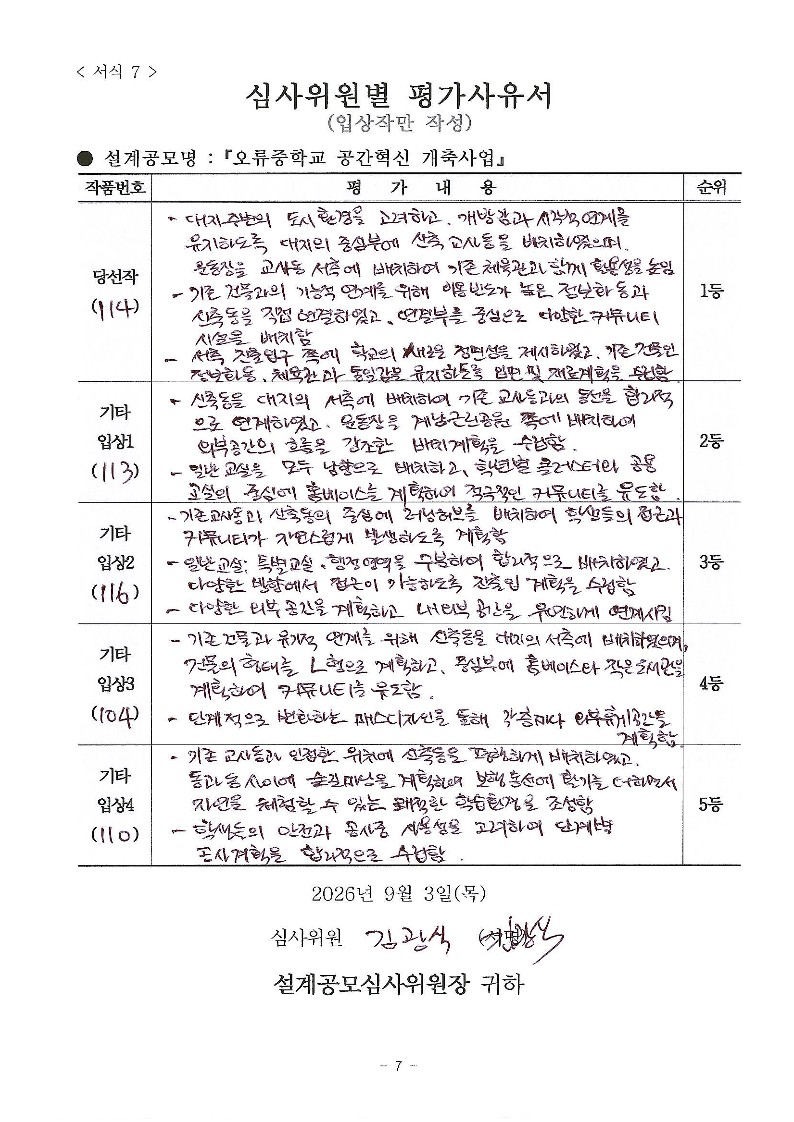 < 서식 7 >
심사위원별 평가사유서
(입상작만 작성)
● 설계공모명 : 『오류중학교 공간혁신 개축사업』
작품번호 평 가 내 용 순위
당선작
(114)
- 대지주변의 도시환경을 고려하고, 개방감과 시각적 연계를
유지하도록 대지의 중심부에 신축 교사동을 배치하였으며,
운동장을 교사동 서측에 배치하여 기존 체육관과 함께 활용성을 높임
- 기존 건물과의 기능적 연계를 위해 이용빈도가 높은 정보화동과
신축동을 직접 연결하였고, 연결부를 중심으로 다양한 커뮤니티
시설을 배치함
- 서측 진출입구 쪽에 학교의 새로운 정면성을 제시하였고, 기존 건물인
정보화동, 체육관과 통일감을 유지하도록 입면 및 재료계획을 수립함
1등
기타
입상1
(113)
- 신축동을 대지의 서측에 배치하여 기존 교사동과의 동선을 합리적
으로 연계하였고, 운동장을 계남근린공원 쪽에 배치하여
외부공간의 흐름을 강조한 배치계획을 수립함.
- 일반교실을 모두 남향으로 배치하고, 학년별 클러스터와 공용
교실의 중심에 홈베이스를 계획하여 적극적인 커뮤니티를 유도함.
2등
기타
입상2
(116)
- 기존교사동과 신축동의 중심에 러닝허브를 배치하여 학생들의 접근과
커뮤니티가 자연스럽게 발생하도록 계획함
- 일반교실, 특별교실, 행정영역을 구분하여 합리적으로 배치하였고,
다양한 방향에서 접근이 가능하도록 진출입 계획을 수립함
- 다양한 외부공간을 계획하고 내외부 공간을 유연하게 연계시킴
3등
기타
입상3
(104)
- 기존건물과 유기적 연계를 위해 신축동을 대지의 서측에 배치하였으며,
건물의 형태를 L형으로 계획하고, 중심부에 홈베이스와 작은도서관을
계획하여 커뮤니티를 유도함.
- 단계적으로 변화하는 매스디자인을 통해 각층마다 외부휴게공간을
계획함
4등
기타
입상4
(110)
- 기존 교사동과 인접한 위치에 신축동을 평행하게 배치하였고,
동과 동 사이에 숲길마당을 계획하여 보행동선에 활기를 더하면서
자연을 체험할 수 있는 쾌적한 학습환경을 조성함
- 학생들의 안전과 공사중 사용성을 고려하여 단계별
공사계획을 합리적으로 수립함.
5등
2026년 9월 3일(목)
심사위원 김광식 (서명)
설계공모심사위원장 귀하
- 7 -